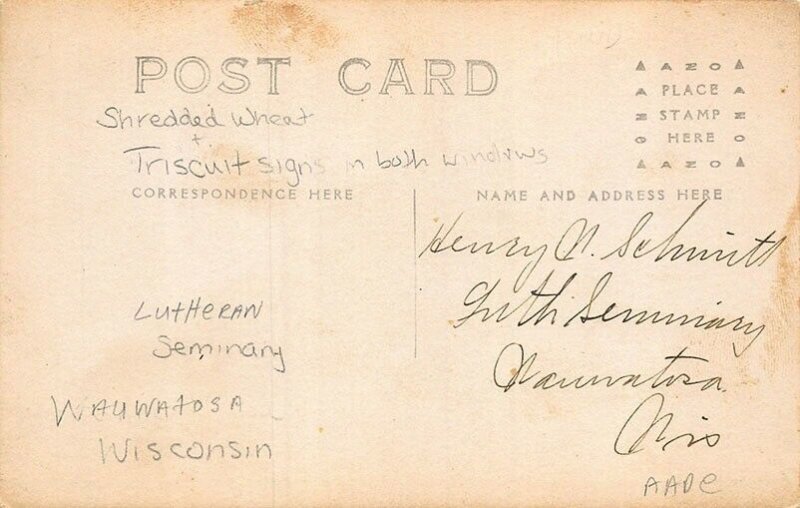 POST CARD
▲ A Z O ▲
▲ PLACE ▲
Z STAMP Z
O HERE O
▲ A Z O ▲
Shredded Wheat
+
Triscuit signs in both windows
CORRESPONDENCE HERE
NAME AND ADDRESS HERE
Henry N. Schmitt
Luth Seminary
Wauwatosa
Wis
Lutheran
Seminary
Wauwatosa
Wisconsin